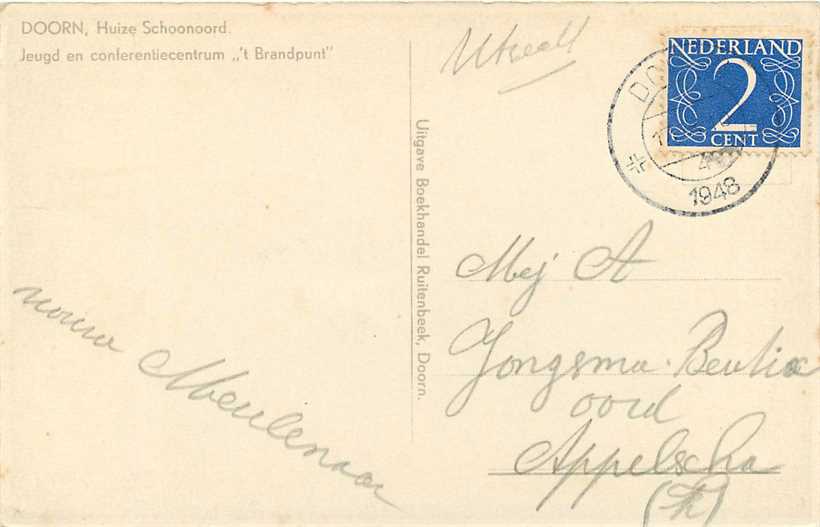 DOORN, Huize Schoonoord.
Jeugd en conferentiecentrum „'t Brandpunt"
Utrecht
NEDERLAND
2
CENT
DO
4
1948
Uitgave Boekhandel Ruitenbeek, Doorn.
Mej A
Jongsma. Beutix
oord
Appelscha
(Fr)
Meulenaar